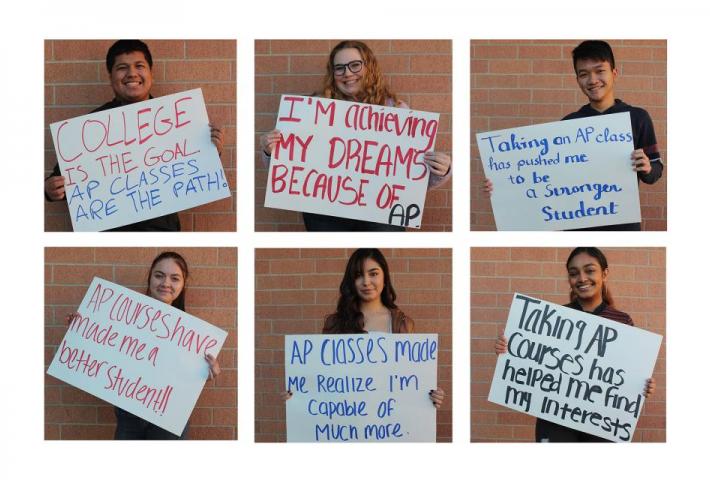 COLLEGE
IS THE GOAL
AP CLASSES
ARE THE PATH!
I'M Achieving
MY DREAMS
BECAUSE OF
AP.
Taking an AP class
has pushed me
to be
a Stronger
Student
AP Courses have
made me a
better Student!!
AP Classes made
Me Realize I'm
Capable of
Much more.
Taking AP
Courses has
helped me find
my interests